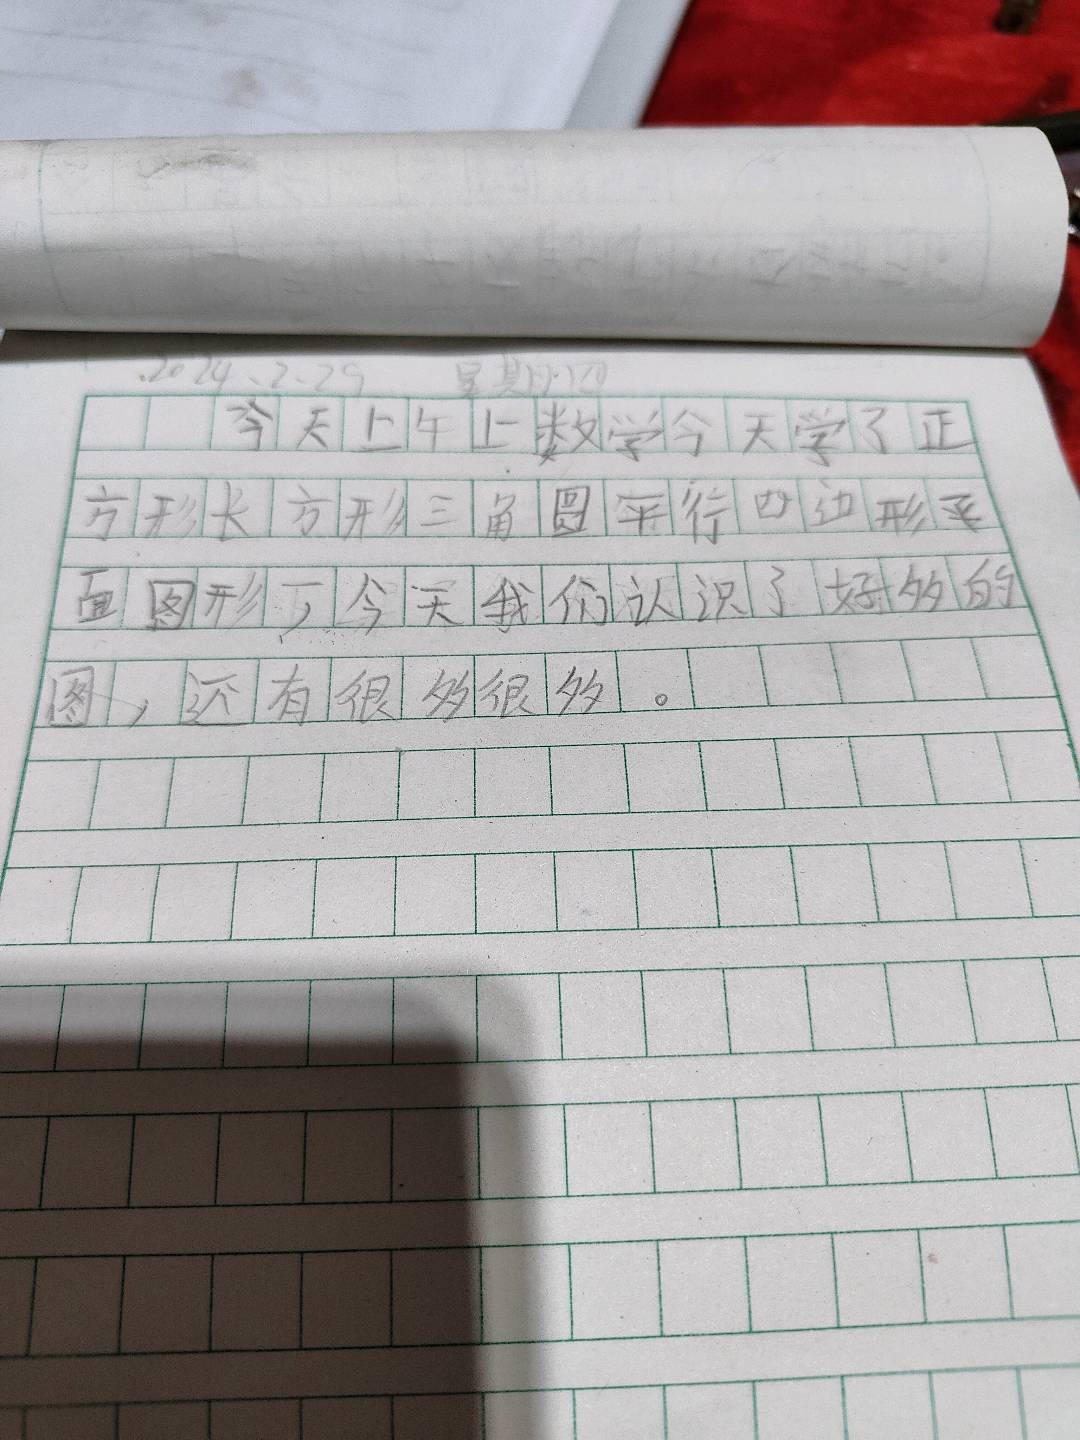 2024.2.29 星期四
今天上午上数学今天学了正
方形长方形三角圆平行四边形平
面图形了,今天我们认识了好多的
图,还有很多很多。